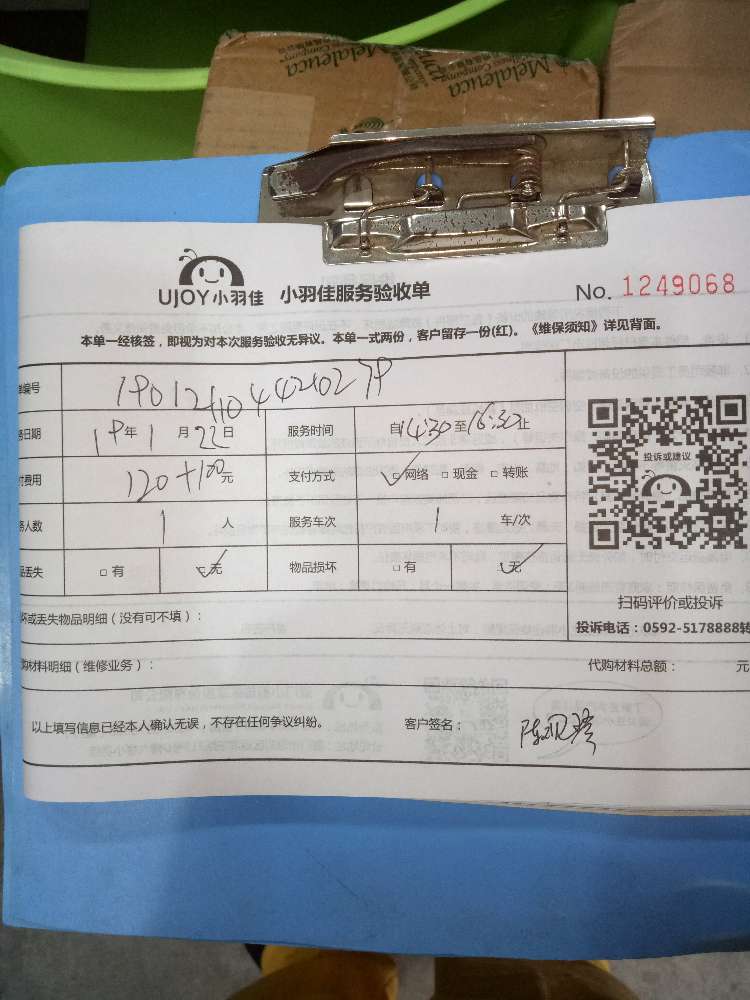 Melaleuca
Wellness Company
Melaleuca
UJOY小羽佳 小羽佳服务验收单 No. 1249068
本单一经核签，即视为对本次服务验收无异议。本单一式两份，客户留存一份(红)。《维保须知》详见背面。
单编号
务日期 19年1月22日 服务时间 自14:30至16:30止
费用 120+100元 支付方式 网络 现金 转账
务人数 1人 服务车次 1车/次
品丢失 有 无 物品损坏 有 无
投诉或建议
扫码评价或投诉
投诉电话：0592-5178888转
坏或丢失物品明细（没有可不填）：
购材料明细（维修业务）： 代购材料总额： 元
以上填写信息已经本人确认无误，不存在任何争议纠纷。 客户签名：